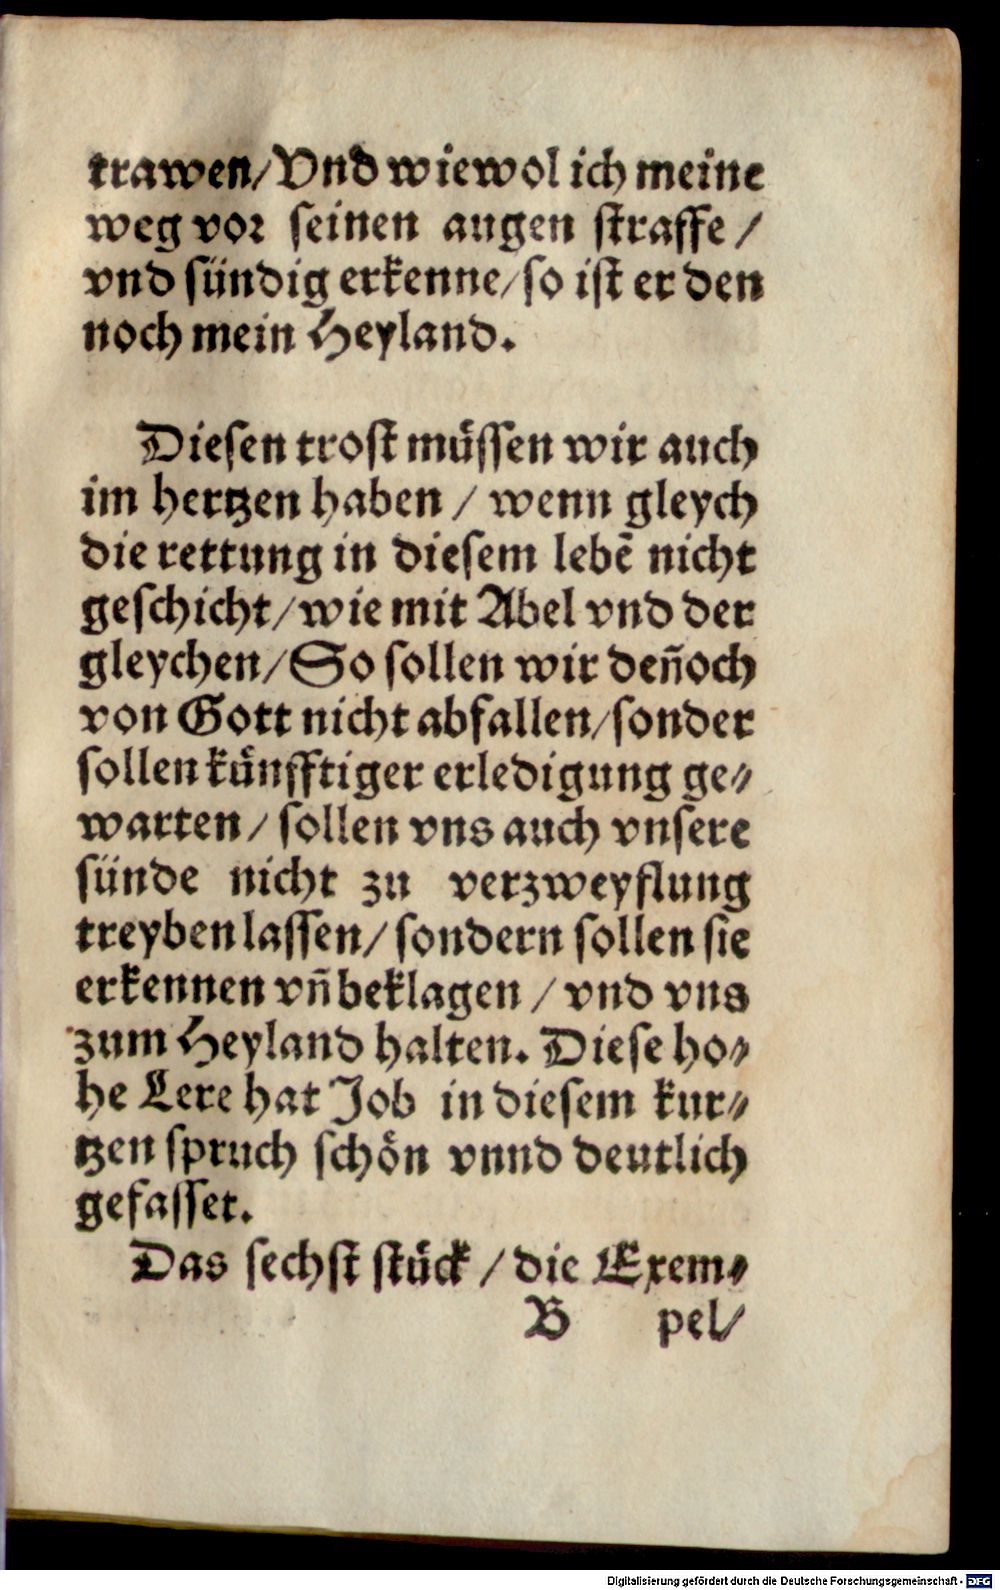 trawen/Vnd wiewol ich meine
weg vor seinen augen straffe /
vnd sündig erkenne/so ist er den
noch mein Heyland.
Diesen trost müssen wir auch
im hertzen haben / wenn gleych
die rettung in diesem lebē nicht
geschicht/wie mit Abel vnd der
gleychen/So sollen wir den̄och
von Gott nicht abfallen/sonder
sollen künfftiger erledigung ge⸗
warten/ sollen vns auch vnsere
sünde nicht zu verzweyflung
treyben lassen/ sondern sollen sie
erkennen vn̄ beklagen / vnd vns
zum Heyland halten. Diese ho⸗
he Lere hat Job in diesem kur⸗
tzen spruch schön vnnd deutlich
gefasset.
Das sechst stück / die Exem⸗
B pel/
Digitalisierung gefördert durch die Deutsche Forschungsgemeinschaft - DFG